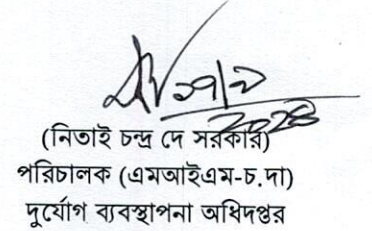 ১৭/২
২০২৪
(নিতাই চন্দ্র দে সরকার)
পরিচালক (এমআইএম-চ.দা)
দুর্যোগ ব্যবস্থাপনা অধিদপ্তর